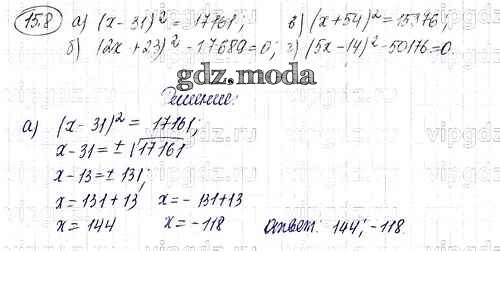 15.8 а) (x-31)² = 17161; в) (x+54)² = 15376;
б) (2x+23)² - 17689 = 0; г) (5x-14)² - 50176 = 0
gdz.moda
Решение:
а) (x-31)² = 17161;
x-31 = ± √17161
x-13 = ± 131;
x = 131+13 x = -131+13
x = 144 x = -118 Ответ: 144; -118